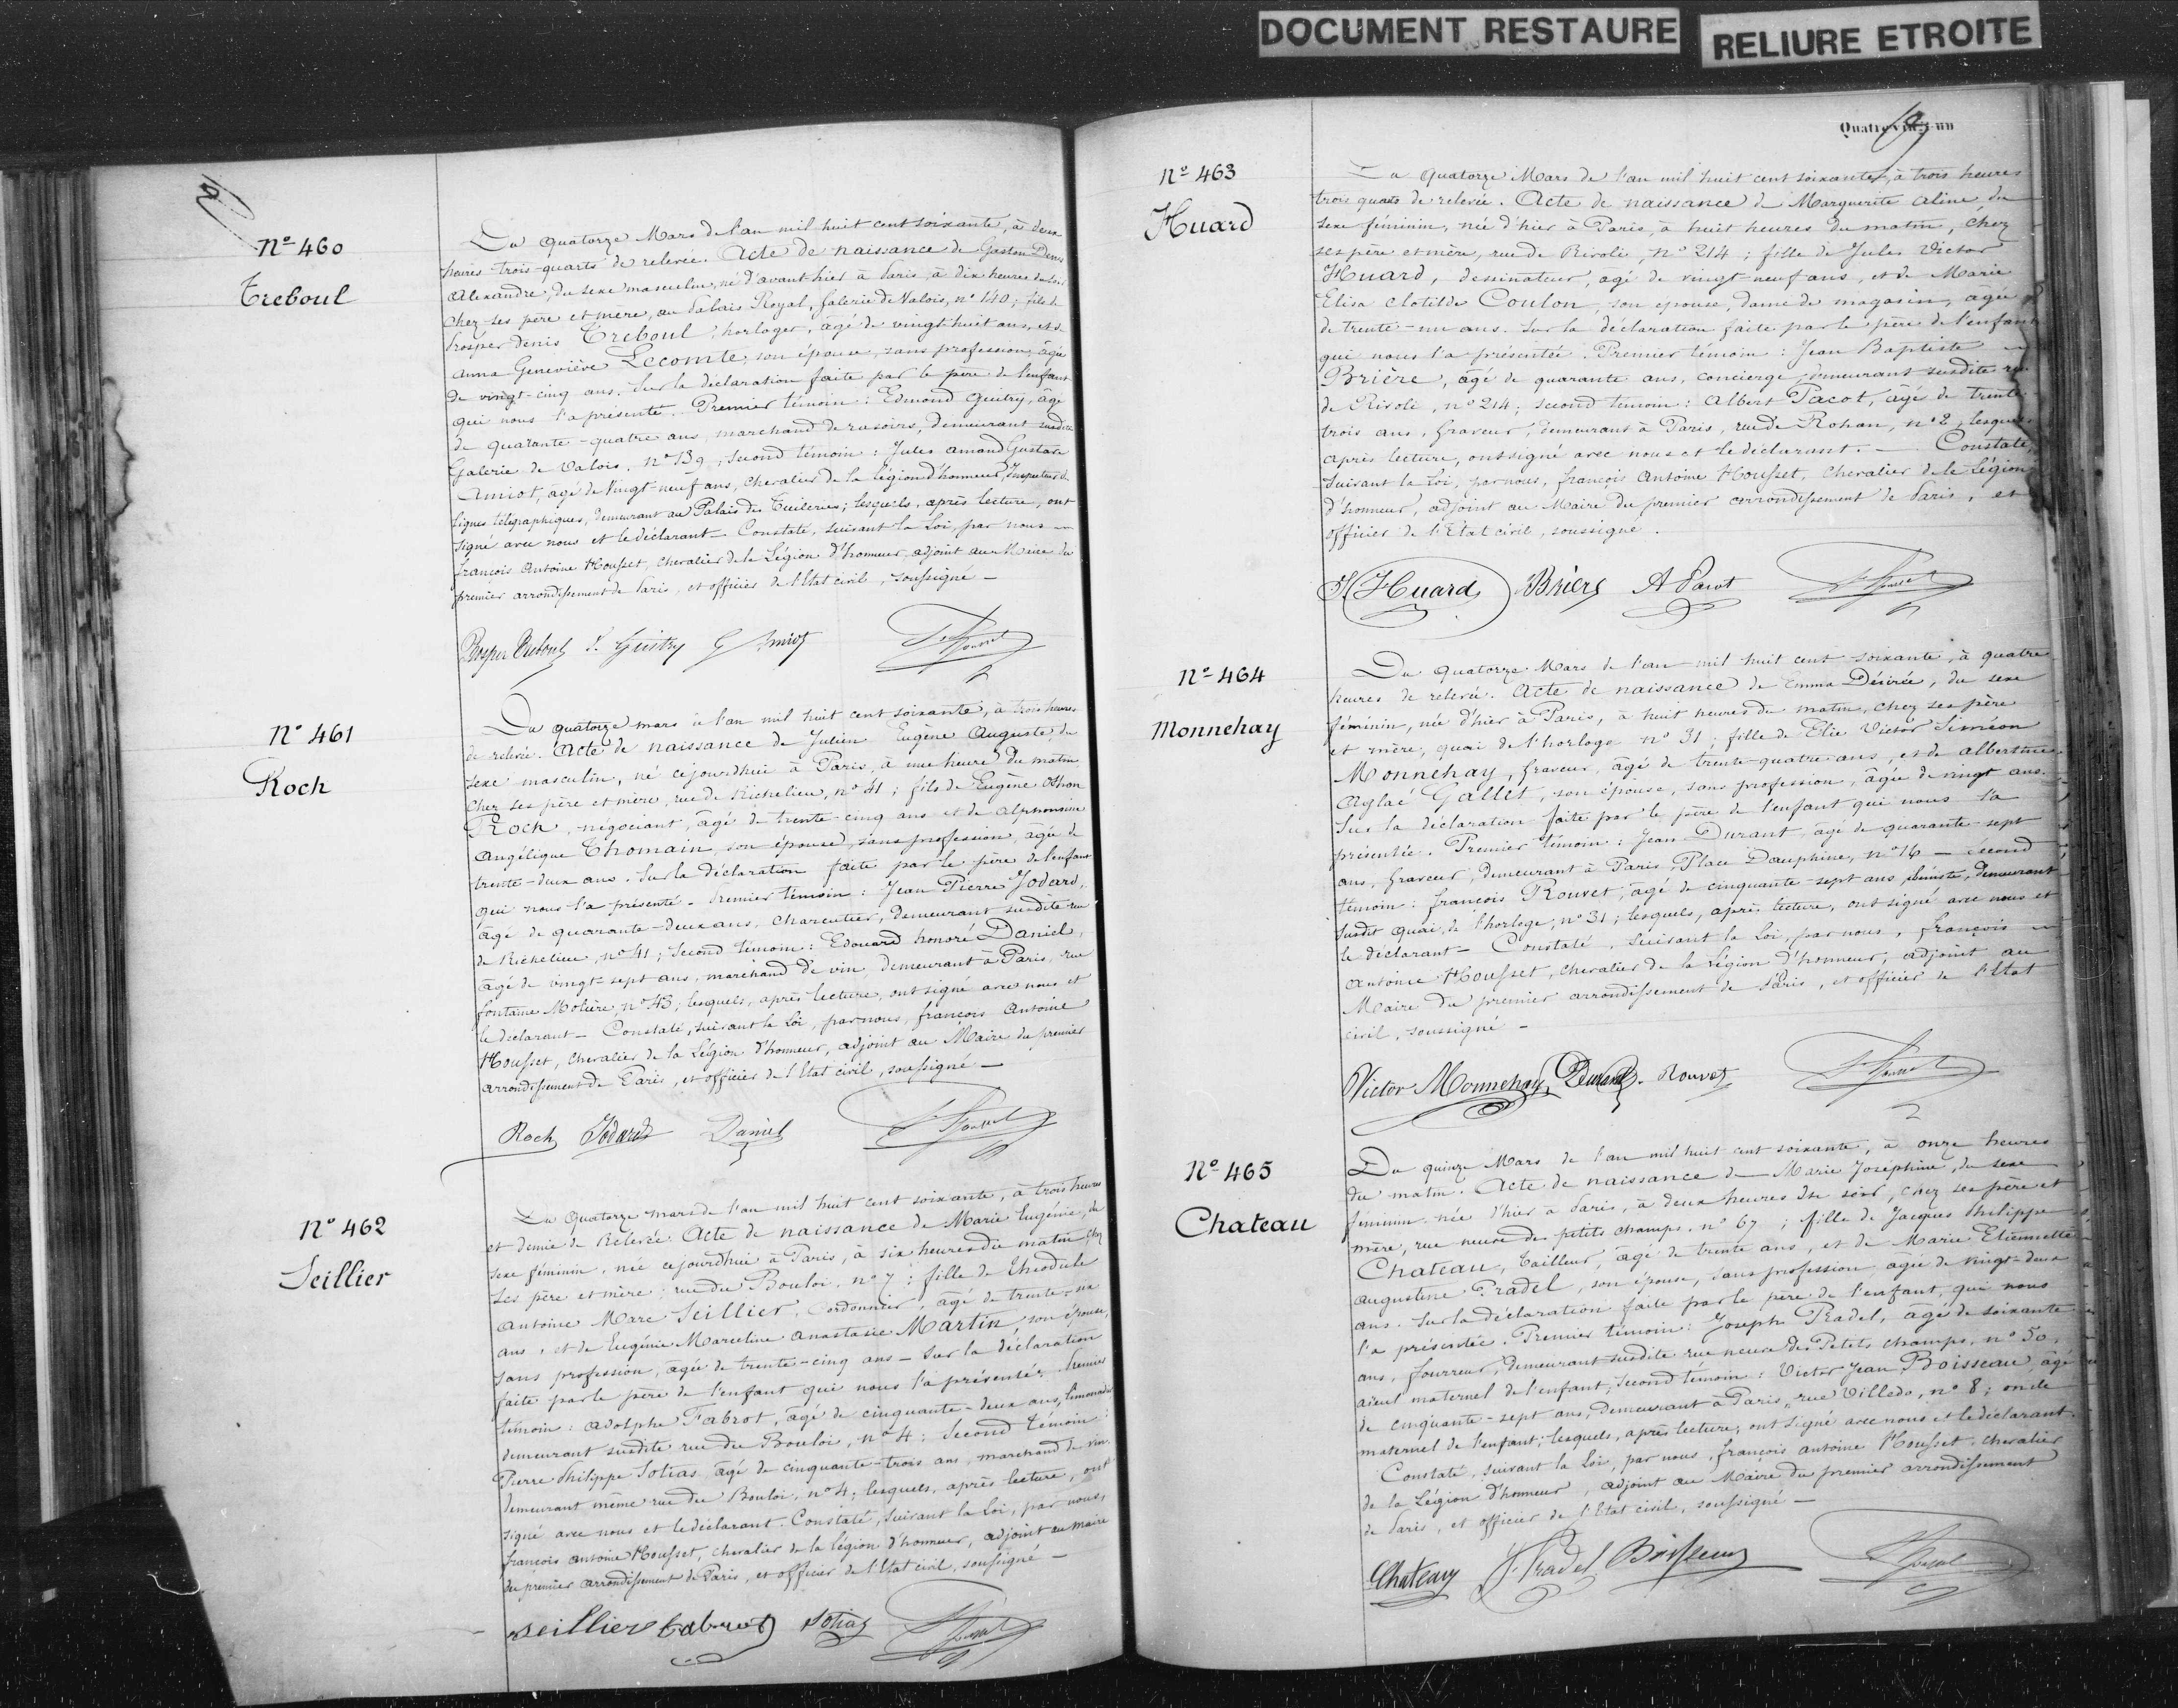 DOCUMENT RESTAURE
RELIURE ETROITE
Nº 460
Treboul
Du quatorze Mars de l'an mil huit cent soixante, à deux
heures trois-quarts de relevée. Acte de naissance de Gaston Denis
Alexandre, du sexe masculin, né d'avant hier à Paris, à dix heures du soir
chez ses père et mère, au Palais Royal, Galerie de Valois, nº 140; fils de
Prosper Denis Treboul, horloger, âgé de vingt-huit ans, et de
anna Geneviève Lecomte, son épouse, sans profession, âgée
de vingt-cinq ans. Sur la déclaration faite par le père de l'enfant
qui nous l'a présenté. Premier témoin: Edmond Guitry, âgé
de quarante-quatre ans, marchand de rasoirs, demeurant susdite
Galerie de Valois, nº 139; second témoin: Jules amand Gustave
Amiot, âgé de Vingt-neuf ans, chevalier de la Légion d'honneur, Inspecteur des
lignes télégraphiques, demeurant au Palais des Tuileries; lesquels, après lecture, ont
signé avec nous et le déclarant - Constaté, suivant la Loi, par nous
françois Antoine Housset, chevalier de la Légion d'honneur, adjoint au Maire du
premier arrondissement de Paris, et officier de l'Etat civil, soussigné -
Prosper Treboul E. Guitry G Amiot
Nº 461
Roch
Du quatorze mars de l'an mil huit cent soixante, à trois heures
de relevée. Acte de naissance de Julien Eugène Auguste, du
sexe masculin, né cejourdhui à Paris, à une heure du matin
chez ses père et mère, rue de Richelieu, nº 41; fils de Eugène Othon
Roch, négociant, âgé de trente-cinq ans et de alphonsine
angélique Thomain, son épouse, sans profession, âgée de
trente-deux ans. Sur la déclaration faite par le père de l'enfant
qui nous l'a présenté - Premier témoin: Jean Pierre Jodard,
âgé de quarante-deux ans, charcutier, demeurant susdite rue
de Richelieu, nº 41; Second témoin: Edouard honoré Daniel,
âgé de vingt-sept ans, marchand de vin, demeurant à Paris, rue
fontaine Molière, nº 43; lesquels, après lecture, ont signé avec nous et
le déclarant - Constaté, suivant la Loi, par nous, françois Antoine
Housset, chevalier de la Légion d'honneur, adjoint au Maire du premier
arrondissement de Paris, et officier de l'Etat civil, soussigné -
Roch Jodard Daniel
Nº 462
Seillier
Du Quatorze mars de l'an mil huit cent soixante, à trois heures
et demie de Relevée. Acte de naissance de Marie Eugénie, du
sexe féminin, née cejourdhui à Paris, à six heures du matin, chez
ses père et mère, rue du Bouloi, nº 7; fille de Théodule
antoine Marc Seillier, Cordonnier, âgé de trente-six
ans, et de Eugénie Marceline anastasie Martin, son épouse,
sans profession, âgée de trente-cinq ans - Sur la déclaration
faite par le père de l'enfant qui nous l'a présentée. Premier
témoin: adolphe Fabrot, âgé de cinquante-deux ans, limonadier
demeurant susdite rue du Bouloi, nº 4; Second témoin:
Pierre Philippe Sotias, âgé de cinquante-trois ans, marchand de vin,
demeurant même rue du Bouloi, nº 4; lesquels, après lecture, ont
signé avec nous et le déclarant. Constaté, suivant la Loi, par nous,
françois antoine Housset, chevalier de la légion d'honneur, adjoint au maire
du premier arrondissement de Paris, et officier de l'Etat civil, soussigné -
Seillier Fabrot Sotias
Quatre-vingt-un
Nº 463
Huard
Du Quatorze Mars de l'an mil huit cent soixante, à trois heures
trois quarts de relevée. Acte de naissance de Marguerite Aline du
sexe féminin, née d'hier à Paris, à huit heures du matin, chez
ses père et mère, rue de Rivoli, nº 214; fille de Jules Victor
Huard, dessinateur, agé de vingt neuf ans, et de Marie
Elisa Clotilde Coulon, son épouse, dame de magasin, âgée
de trente-un ans. Sur la déclaration faite par le père de l'enfant
qui nous l'a présentée. Premier témoin: Jean Baptiste
Brière, âgé de quarante ans, concierge, demeurant susdite rue
de Rivoli, nº 214; second témoin: Albert Pacot, âgé de trente
trois ans, Graveur, demeurant à Paris, rue de Rohan, nº 2, lesquels
après lecture, ont signé avec nous et le déclarant. - Constaté,
Suivant la Loi, par nous, françois Antoine Housset, Chevalier de la Légion
d'honneur, adjoint au Maire du premier arrondissement de Paris, et
officier de l'Etat civil, soussigné.
Huard Brière A Pacot
Nº 464
Monnehay
Du Quatorze Mars de l'an mil huit cent soixante, à quatre
heures de relevée. Acte de naissance de Emma Désirée, du sexe
féminin, née d'hier à Paris, à huit heures du matin, chez ses père
et mère, quai de l'horloge nº 31; fille de Elie Victor Siméon
Monnehay, Graveur, âgé de trente-quatre ans, et de albertine
Aglaé Gallet, son épouse, sans profession, âgée de vingt ans.
Sur la déclaration faite par le père de l'enfant qui nous l'a
présentée. Premier témoin: Jean Durant, âgé de quarante-sept
ans, Graveur, demeurant à Paris, Place Dauphine, nº 16 - second
témoin: françois Rouvet, âgé de cinquante-sept ans, demeurant
susdit quai de l'horloge, nº 31; lesquels, après lecture, ont signé avec nous et
le déclarant - Constaté, suivant la Loi, par nous, françois
antoine Housset, chevalier de la Légion d'honneur, adjoint au
Maire du premier arrondissement de Paris, et officier de l'Etat
civil, soussigné -
Victor Monnehay Durand Rouvet
Nº 465
Chateau
Du quinze Mars de l'an mil huit cent soixante, à onze heures
du matin. Acte de naissance de Marie Joséphine, du sexe
féminin née d'hier à Paris, à deux heures du soir, chez ses père et
mère, rue neuve des petits champs, nº 67; fille de Jacques Philippe
Chateau, tailleur, âgé de trente ans, et de Marie Etiennette
augustine Pradel, son épouse, sans profession âgée de vingt-deux
ans. Sur la déclaration faite par le père de l'enfant, qui nous
l'a présentée. Premier témoin: Joseph Pradel, âgé de soixante
ans, fourreur, demeurant susdite rue neuve des Petits champs, nº 50,
aïeul maternel de l'enfant, second témoin: Victor Jean Boisseau, âgé
de cinquante-sept ans, demeurant à Paris, rue Villedo, nº 8; oncle
maternel de l'enfant; lesquels, après lecture, ont signé avec nous et le déclarant.
Constaté, suivant la Loi, par nous, françois antoine Housset, chevalier
de la Légion d'honneur, adjoint au Maire du premier arrondissement
de Paris, et officier de l'Etat civil, soussigné -
Chateau J Pradel Boisseau